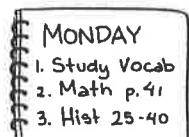 MONDAY
1. Study Vocab
2. Math p. 41
3. Hist 25-40